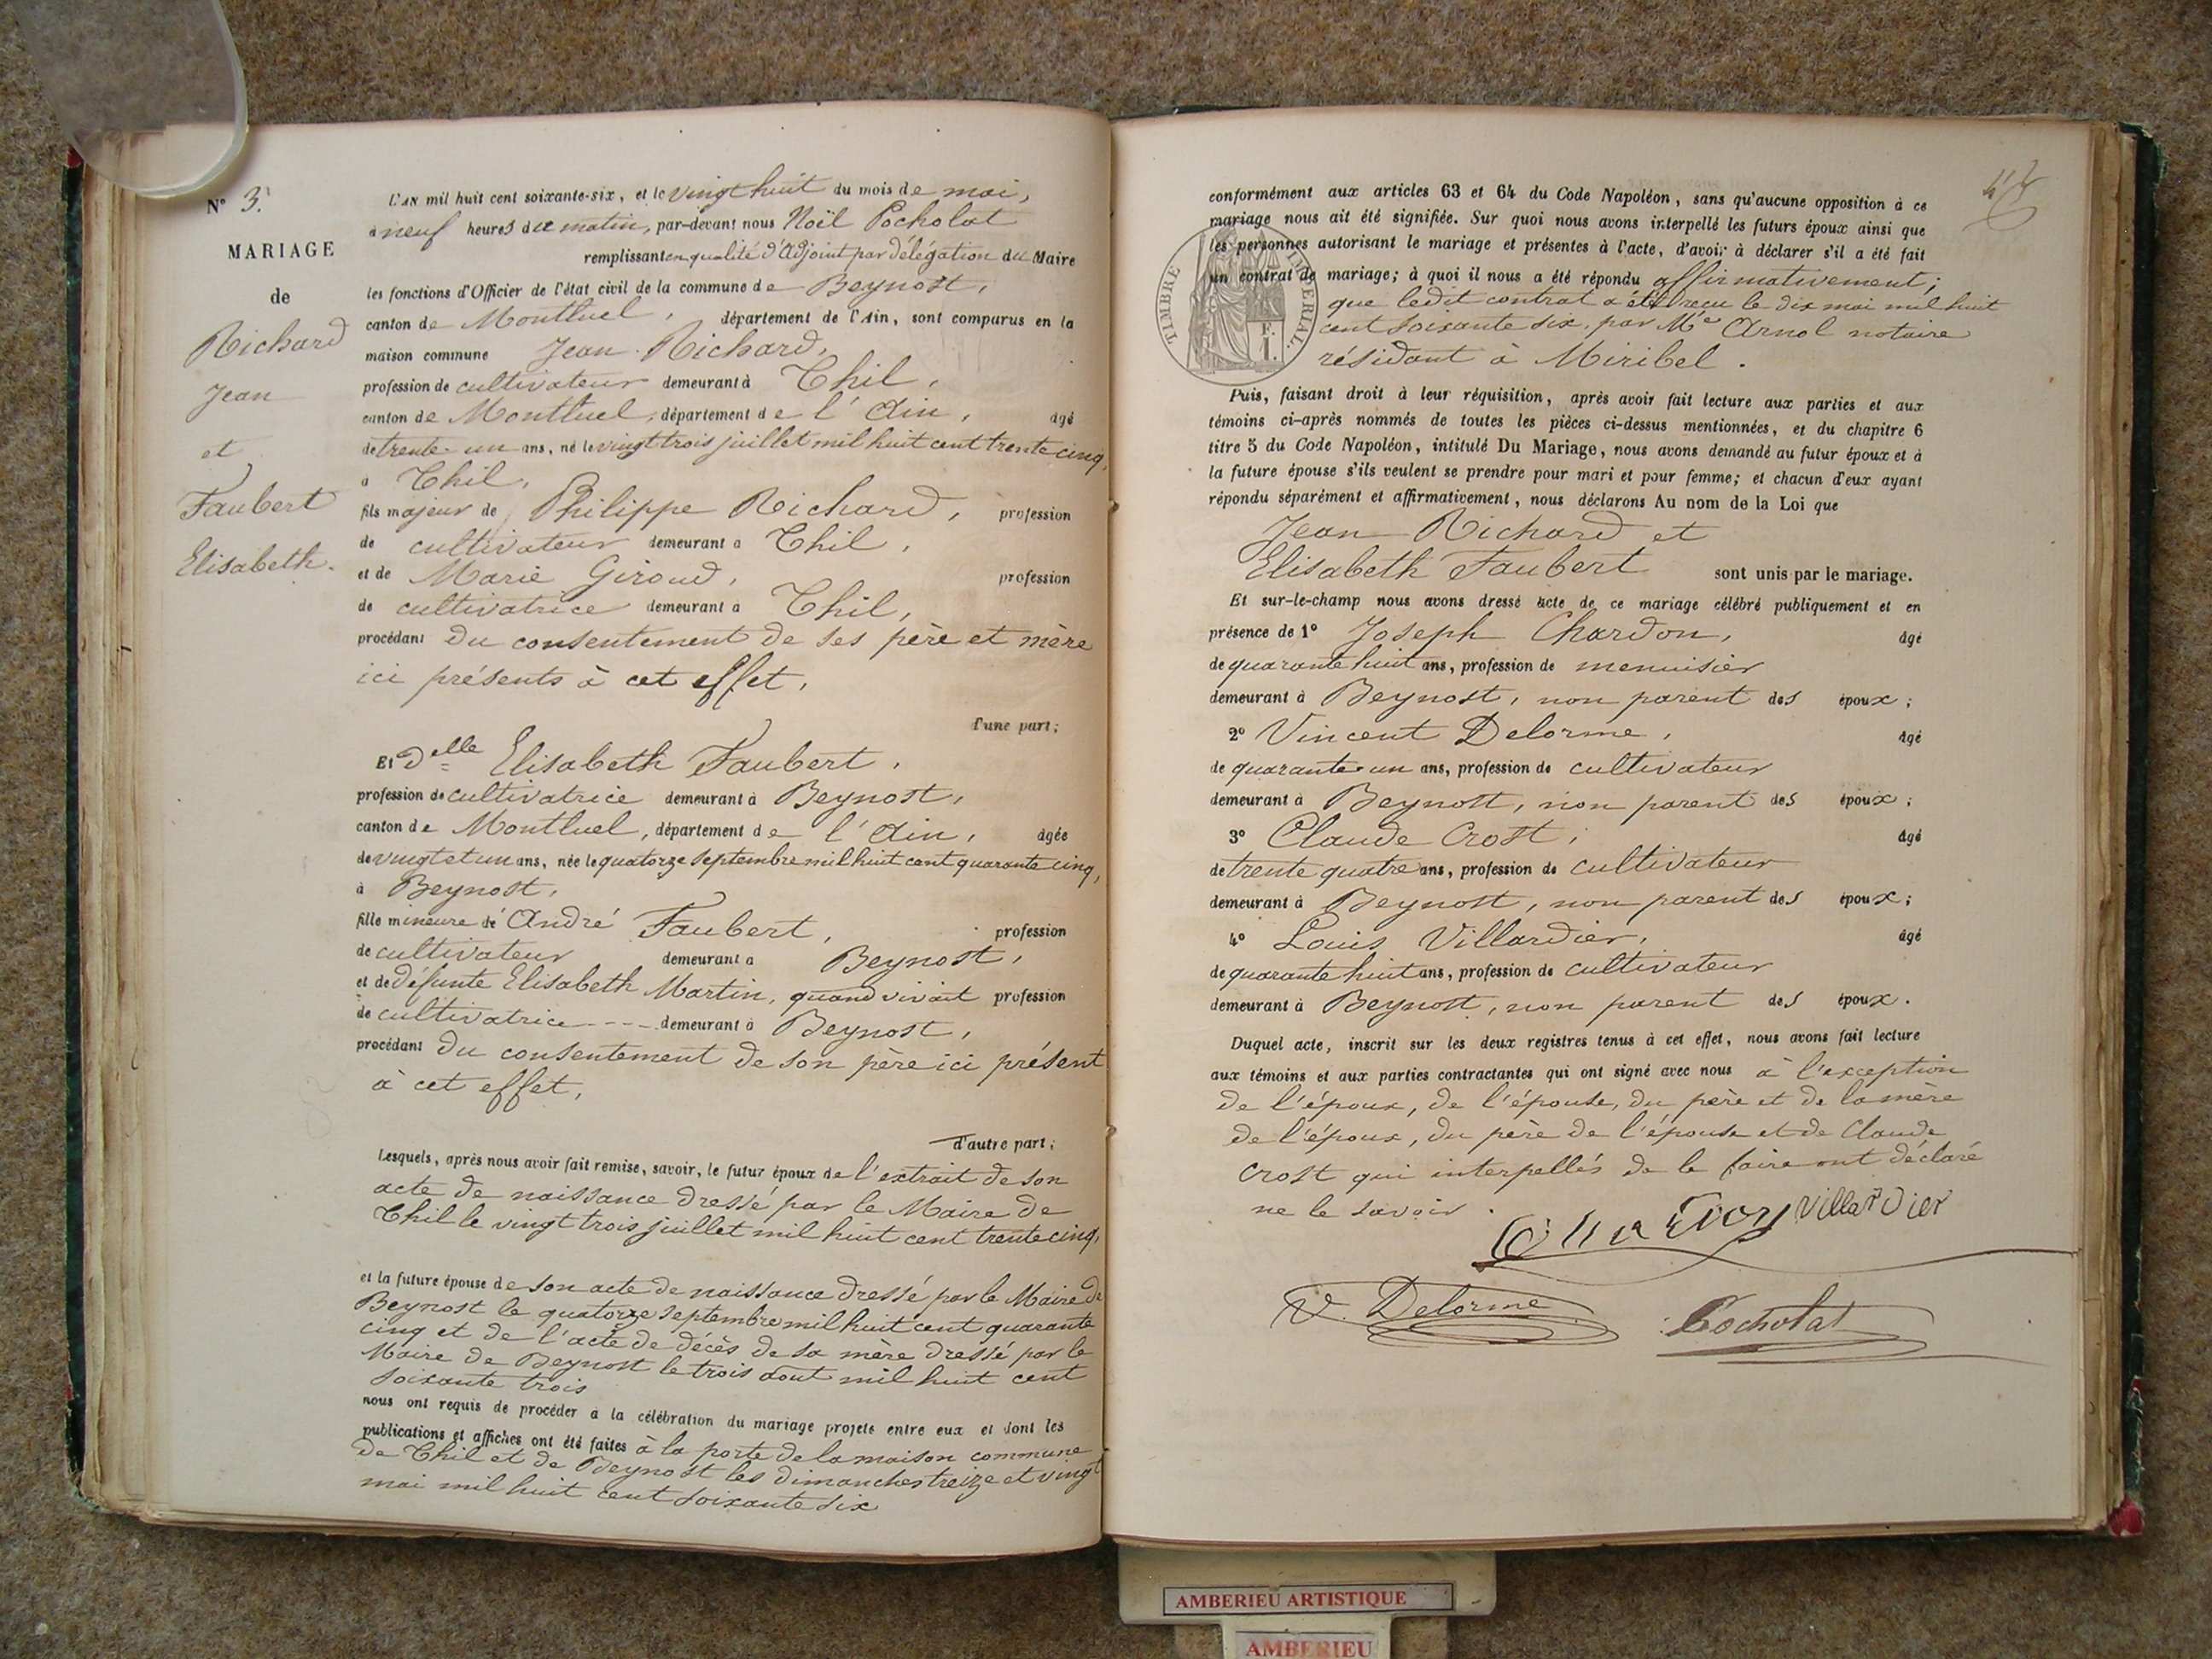 N° 3.
MARIAGE
de
Richard
Jean
et
Faubert
Elisabeth.
L'AN mil huit cent soixante-six, et le vingt huit du mois de mai,
à neuf heures du matin, par-devant nous Noël Pocholat
remplissant en qualité d'Adjoint par délégation du Maire
les fonctions d'Officier de l'état civil de la commune de Beynost,
canton de Montluel, département de l'Ain, sont comparus en la
maison commune Jean Richard,
profession de cultivateur demeurant à Thil,
canton de Montluel, département de l'Ain, âgé
de trente un ans, né le vingt trois juillet mil huit cent trente cinq,
à Thil,
fils majeur de Philippe Richard, profession
de cultivateur demeurant à Thil,
et de Marie Giroud, profession
de cultivatrice demeurant à Thil,
procédant du consentement de ses père et mère
ici présents à cet effet,
d'une part;
Et Delle Elisabeth Faubert,
profession de cultivatrice demeurant à Beynost,
canton de Montluel, département de l'Ain, âgée
de vingt et un ans, née le quatorze septembre mil huit cent quarante cinq,
à Beynost,
fille mineure de André Faubert, profession
de cultivateur demeurant à Beynost,
et de défunte Elisabeth Martin, quand vivait profession
de cultivatrice --- demeurant à Beynost,
procédant du consentement de son père ici présent
à cet effet,
d'autre part;
Lesquels, après nous avoir fait remise, savoir, le futur époux de l'extrait de son
acte de naissance dressé par le Maire de
Thil le vingt trois juillet mil huit cent trente cinq,
et la future épouse de son acte de naissance dressé par le Maire de
Beynost le quatorze septembre mil huit cent quarante
cinq et de l'acte de décès de sa mère dressé par le
Maire de Beynost le trois aout mil huit cent
soixante trois
nous ont requis de procéder à la célébration du mariage projeté entre eux et dont les
publications et affiches ont été faites à la porte de la maison commune
de Thil et de Beynost les dimanches treize et vingt
mai mil huit cent soixante six
conformément aux articles 63 et 64 du Code Napoléon, sans qu'aucune opposition à ce
mariage nous ait été signifiée. Sur quoi nous avons interpellé les futurs époux ainsi que
les personnes autorisant le mariage et présentes à l'acte, d'avoir à déclarer s'il a été fait
un contrat de mariage; à quoi il nous a été répondu affirmativement;
que ledit contrat a été reçu le dix mai mil huit
cent soixante six, par Me Arnol notaire
résidant à Miribel.
TIMBRE IMPERIAL.
1 F.
Puis, faisant droit à leur réquisition, après avoir fait lecture aux parties et aux
témoins ci-après nommés de toutes les pièces ci-dessus mentionnées, et du chapitre 6
titre 5 du Code Napoléon, intitulé Du Mariage, nous avons demandé au futur époux et à
la future épouse s'ils veulent se prendre pour mari et pour femme; et chacun d'eux ayant
répondu séparément et affirmativement, nous déclarons Au nom de la Loi que
Jean Richard et
Elisabeth Faubert sont unis par le mariage.
Et sur-le-champ nous avons dressé acte de ce mariage célébré publiquement et en
présence de 1° Joseph Chardon, âgé
de quarante huit ans, profession de menuisier
demeurant à Beynost, non parent des époux;
2° Vincent Delorme, âgé
de quarante un ans, profession de cultivateur
demeurant à Beynost, non parent des époux;
3° Claude Crost, âgé
de trente quatre ans, profession de cultivateur
demeurant à Beynost, non parent des époux;
4° Louis Villardier, âgé
de quarante huit ans, profession de cultivateur
demeurant à Beynost, non parent des époux.
Duquel acte, inscrit sur les deux registres tenus à cet effet, nous avons fait lecture
aux témoins et aux parties contractantes qui ont signé avec nous à l'exception
de l'époux, de l'épouse, du père et de la mère
de l'époux, du père de l'épouse et de Claude
Crost qui interpellés de le faire ont déclaré
ne le savoir.
Chardon Villardier
V. Delorme Pocholat
AMBERIEU ARTISTIQUE
AMBERIEU